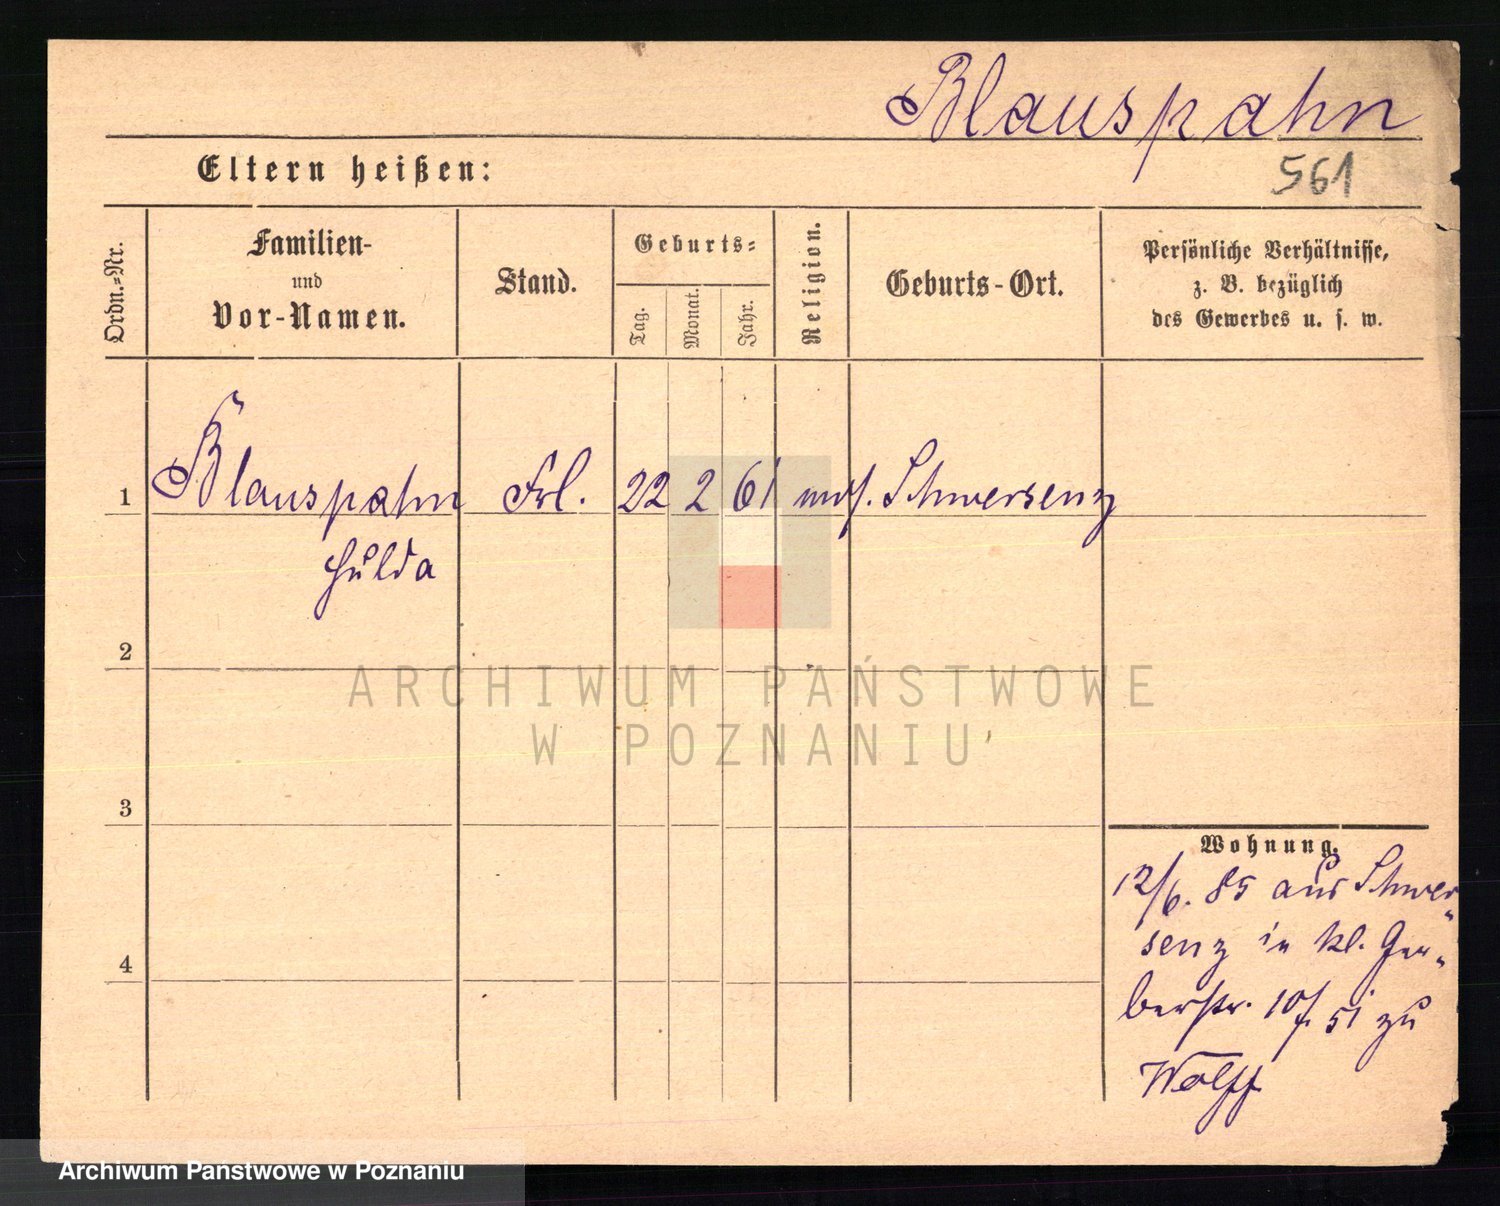 Blauspahn
Eltern heißen:
561
Ordn.-Nr.
Familien-
und
Vor-Namen.
Stand.
Geburts-
Tag.
Monat.
Jahr.
Religion.
Geburts-Ort.
Persönliche Verhältnisse,
z. B. bezüglich
des Gewerbes u. s. w.
1 Blauspahn Frl. 22 2 61 mos. Schwersenz
Hulda
2
ARCHIWUM PAŃSTWOWE
W POZNANIU
3
Wohnung.
12/6. 85 aus Schwer-
senz in kl. Ger-
4
berstr. 10/ zu
Wolff
Archiwum Państwowe w Poznaniu